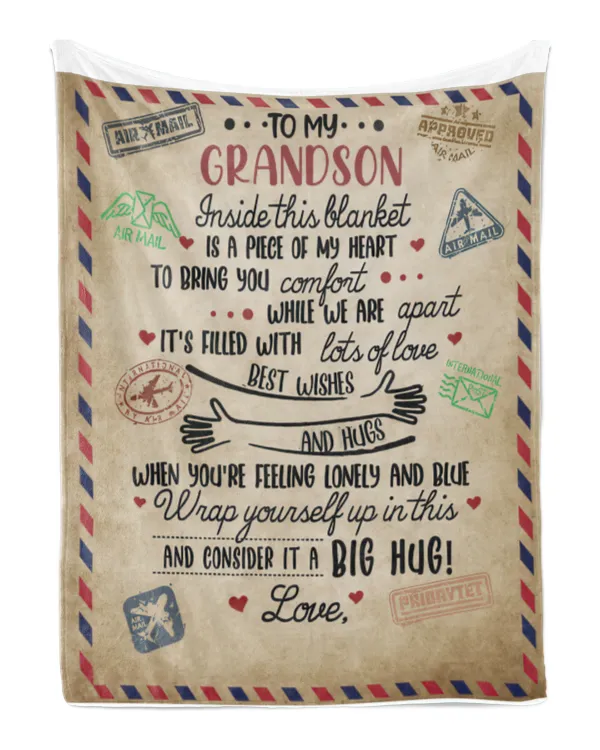 AIR MAIL
TO MY
APPROVED
AIR MAIL
GRANDSON
Inside this blanket
AIR MAIL
AIR MAIL
IS A PIECE OF MY HEART
TO BRING YOU comfort
WHILE WE ARE apart
IT'S FILLED WITH lots of love
INTERNATIONAL
BY AIR MAIL
INTERNATIONAL
BEST WISHES
AND HUGS
WHEN YOU'RE FEELING LONELY AND BLUE
Wrap yourself up in this
AND CONSIDER IT A BIG HUG!
PRIORYTET
Love,
AIR
MAIL